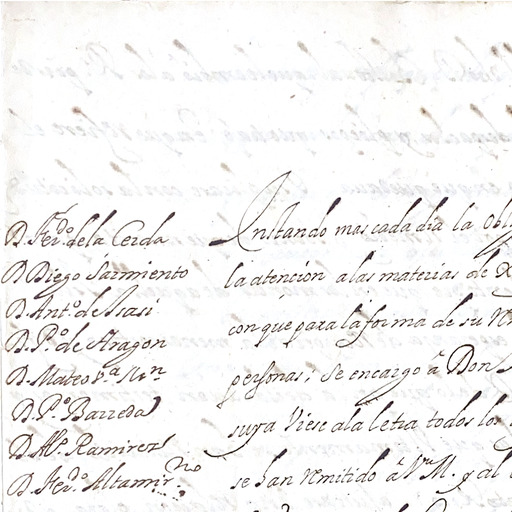 D. Fer.do dela Cerda
D. Diego Sarmiento
D. Ant.o de Isasi
D. P.o de Aragon
D. Mateo
D. P.o Barreda
D. Al.o Ramirez
D. Fer.do Altamir.no
Instando mas cada dia la obli
la atencion a las materias de
con que para la forma de su
personas; se encargó á Don
suya Viese ala letra todos los
se han remitido á V. M. y al